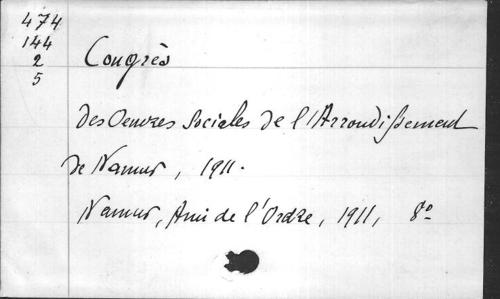 474
144
2
5
Congrès
des Oeuvres Sociales de l'Arrondißement
de Namur, 1911.
Namur, Ami de l'Ordre, 1911, 8º